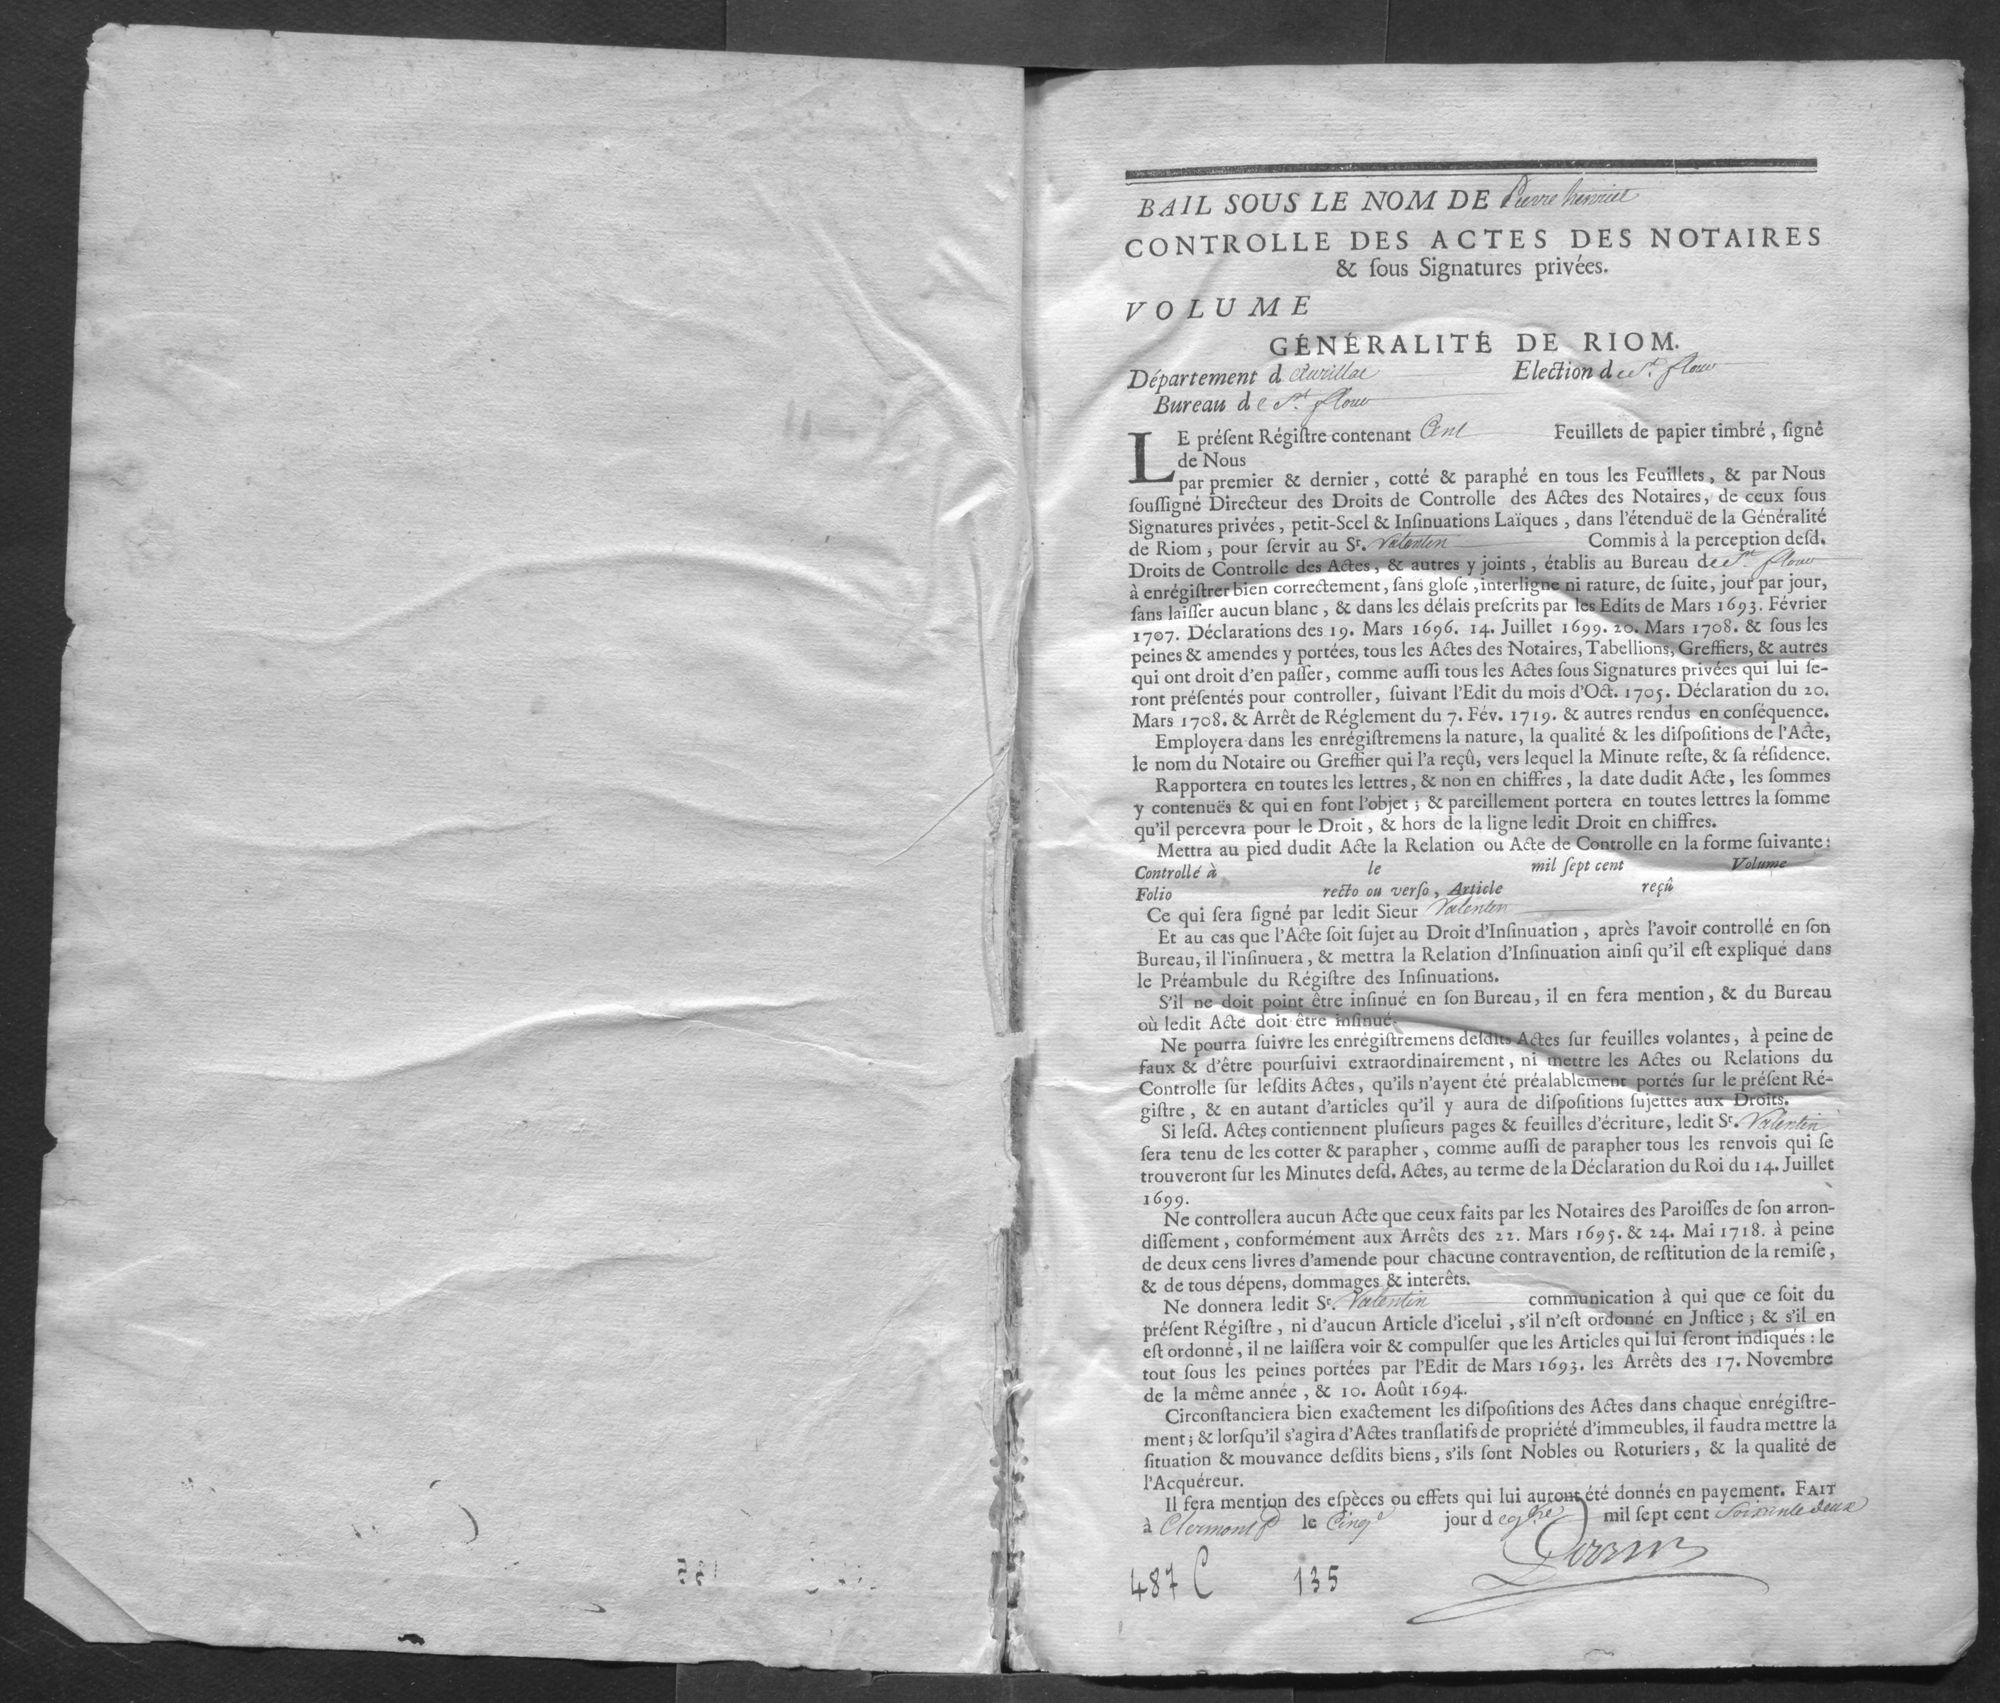 BAIL SOUS LE NOM DE Pierre henriet
CONTROLLE DES ACTES DES NOTAIRES
& ſous Signatures privées.
VOLUME
GÉNÉRALITÉ DE RIOM.
Département d Aurillac Election de St. flour
Bureau de St. flour
LE préſent Régiſtre contenant Cent Feuillets de papier timbré, ſigné
de Nous
par premier & dernier, cotté & paraphé en tous les Feuillets, & par Nous
ſouſſigné Directeur des Droits de Controlle des Actes des Notaires, de ceux ſous
Signatures privées, petit-Scel & Inſinuations Laïques, dans l'étenduë de la Généralité
de Riom, pour ſervir au Sr. Valentin Commis à la perception deſd.
Droits de Controlle des Actes, & autres y joints, établis au Bureau de St. flour
à enrégiſtrer bien correctement, ſans gloſe, interligne ni rature, de ſuite, jour par jour,
ſans laiſſer aucun blanc, & dans les délais preſcrits par les Edits de Mars 1693. Février
1707. Déclarations des 19. Mars 1696. 14. Juillet 1699. 20. Mars 1708. & ſous les
peines & amendes y portées, tous les Actes des Notaires, Tabellions, Greffiers, & autres
qui ont droit d'en paſſer, comme auſſi tous les Actes ſous Signatures privées qui lui ſe-
ront préſentés pour controller, ſuivant l'Edit du mois d'Oct. 1705. Déclaration du 20.
Mars 1708. & Arrêt de Réglement du 7. Fév. 1719. & autres rendus en conſéquence.
Employera dans les enrégiſtremens la nature, la qualité & les diſpoſitions de l'Acte,
le nom du Notaire ou Greffier qui l'a reçû, vers lequel la Minute reſte, & ſa réſidence.
Rapportera en toutes les lettres, & non en chiffres, la date dudit Acte, les ſommes
y contenuës & qui en font l'objet; & pareillement portera en toutes lettres la ſomme
qu'il percevra pour le Droit, & hors de la ligne ledit Droit en chiffres.
Mettra au pied dudit Acte la Relation ou Acte de Controlle en la forme ſuivante:
Controllé à le mil ſept cent Volume
Folio recto ou verſo, Article reçû
Ce qui ſera ſigné par ledit Sieur Valentin
Et au cas que l'Acte ſoit ſujet au Droit d'Inſinuation, après l'avoir controllé en ſon
Bureau, il l'inſinuera, & mettra la Relation d'Inſinuation ainſi qu'il eſt expliqué dans
le Préambule du Régiſtre des Inſinuations.
S'il ne doit point être inſinué en ſon Bureau, il en fera mention, & du Bureau
où ledit Acte doit être inſinué.
Ne pourra ſuivre les enrégiſtremens deſdits Actes ſur feuilles volantes, à peine de
faux & d'être pourſuivi extraordinairement, ni mettre les Actes ou Relations du
Controlle ſur leſdits Actes, qu'ils n'ayent été préalablement portés ſur le préſent Ré-
giſtre, & en autant d'articles qu'il y aura de diſpoſitions ſujettes aux Droits.
Si leſd. Actes contiennent pluſieurs pages & feuilles d'écriture, ledit Sr. Valentin
ſera tenu de les cotter & parapher, comme auſſi de parapher tous les renvois qui ſe
trouveront ſur les Minutes deſd. Actes, au terme de la Déclaration du Roi du 14. Juillet
1699.
Ne controllera aucun Acte que ceux faits par les Notaires des Paroiſſes de ſon arron-
diſſement, conformément aux Arrêts des 22. Mars 1695. & 24. Mai 1718. à peine
de deux cens livres d'amende pour chacune contravention, de reſtitution de la remiſe,
& de tous dépens, dommages & interêts.
Ne donnera ledit Sr. Valentin communication à qui que ce ſoit du
préſent Régiſtre, ni d'aucun Article d'icelui, s'il n'eſt ordonné en Juſtice; & s'il en
eſt ordonné, il ne laiſſera voir & compulſer que les Articles qui lui ſeront indiqués: le
tout ſous les peines portées par l'Edit de Mars 1693. les Arrêts des 17. Novembre
de la même année, & 10. Août 1694.
Circonſtanciera bien exactement les diſpoſitions des Actes dans chaque enrégiſtre-
ment; & lorſqu'il s'agira d'Actes tranſlatifs de propriété d'immeubles, il faudra mettre la
ſituation & mouvance deſdits biens, s'ils ſont Nobles ou Roturiers, & la qualité de
l'Acquéreur.
Il ſera mention des eſpèces ou effets qui lui auront été donnés en payement. FAIT
à Clermont le Cinqe jour d mil ſept cent Soixante deux
487 C 135